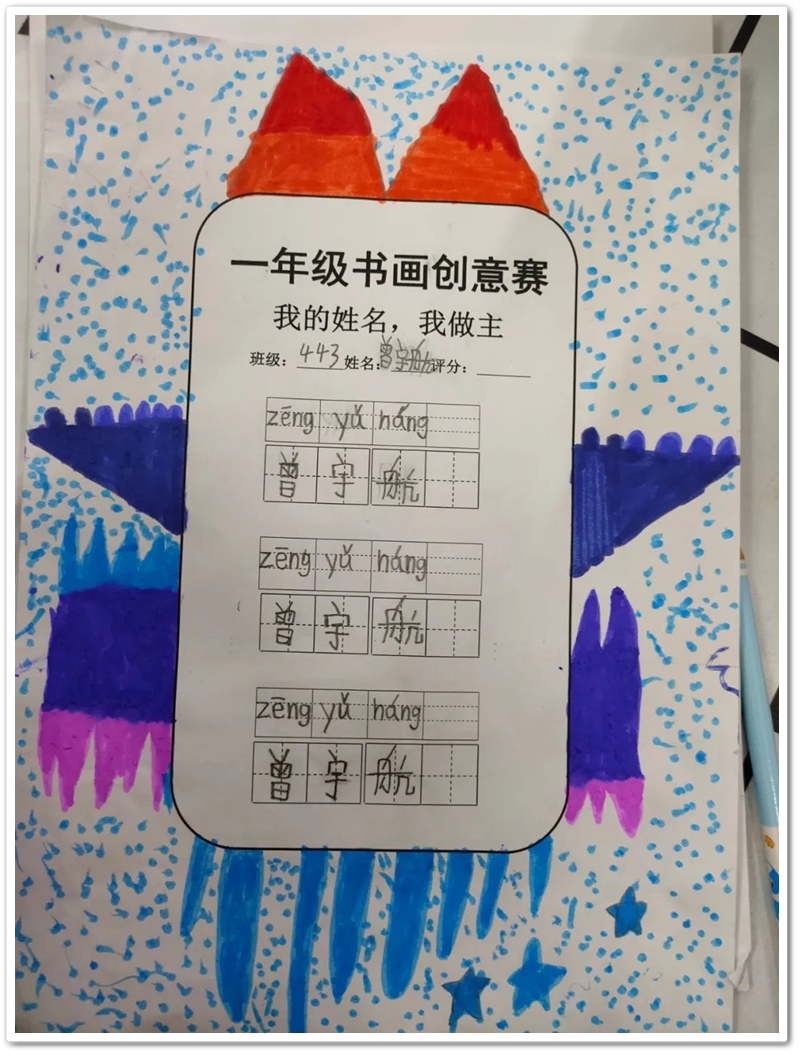 一年级书画创意赛
我的姓名，我做主
班级：443 姓名：曾宇航 评分：
zēng yǔ háng
曾 宇 航
zēng yǔ háng
曾 宇 航
zēng yǔ háng
曾 宇 航